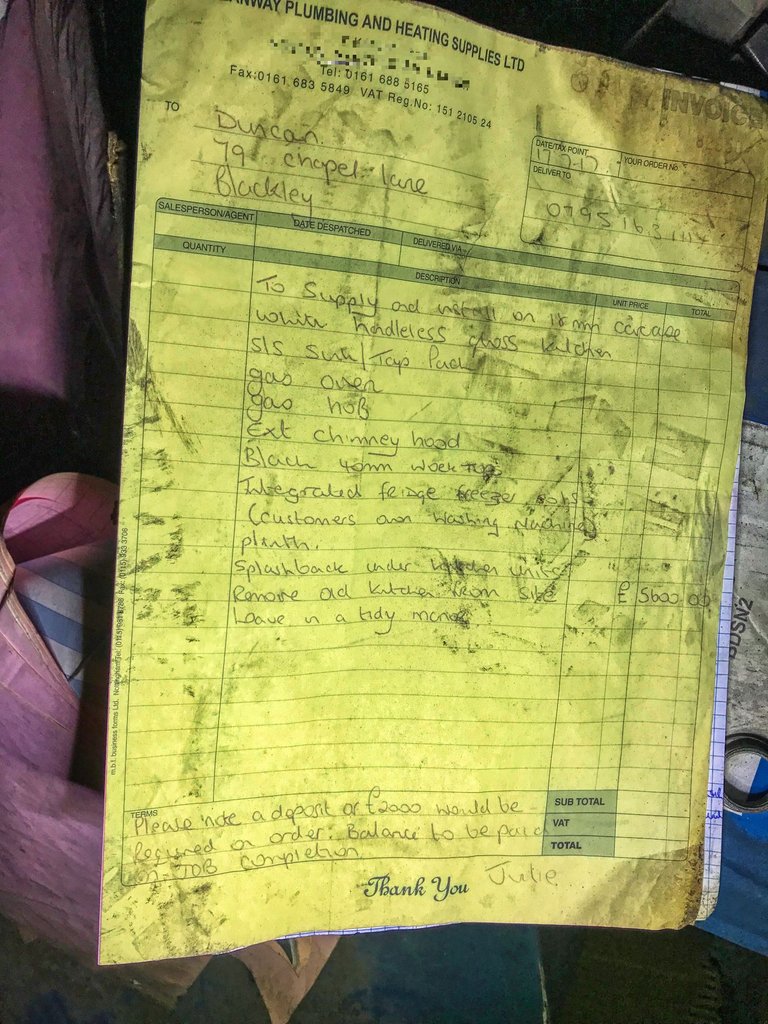 PLUMBING AND HEATING SUPPLIES LTD
Tel: 0161 688 5165
Fax:0161 683 5849 VAT Reg.No: 151 2105 24
INVOICE
TO
Duncan.
79 chapel lane
Blackley
DATE/TAX POINT
YOUR ORDER No
DELIVER TO
SALESPERSON/AGENT
DATE DESPATCHED
DELIVERED VIA
QUANTITY
DESCRIPTION
UNIT PRICE
TOTAL
To Supply and install on 18 mm carcase
White handleless gloss kitchen
S/S Sink/Tap Pack
gas oven
gas hob
Ext chimney hood
Black 40mm worktops
Integrated fridge freezer
(customers own washing machine)
plinth.
Splashback under kitchen units
Remove old kitchen from site £ 5600.00
Leave in a tidy
m.b.f. business forms Ltd.
TERMS
Please note a deposit of £2000 would be
Required on order. Balance to be paid
on JOB completion
SUB TOTAL
VAT
TOTAL
Thank You
Julie
BDSN2